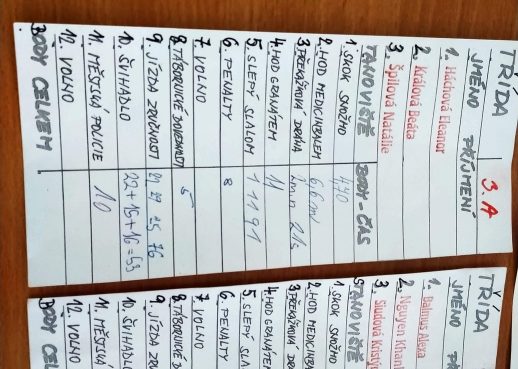 TŘÍDA 3.A
JMÉNO PŘÍJMENÍ
1. Háchová Eleanor
2. Králová Beáta
3. Špilová Natálie
STANOVIŠTĚ BODY - ČAS
1. SKOK SNOŽMO 470
2. HOD MEDICINBALEM 6,6m
3. PŘEKÁŽKOVÁ DRÁHA 2min 21s
4. HOD GRANÁTEM 11
5. SLEPÝ SLALOM 1 11 91
6. PENALTY 8
7. VOLNO
8. TÁBORNICKÉ DOVEDNOSTI 5
9. JÍZDA ZRUČNOSTI 21 27 25 76
10. ŠVIHADLO 22+15+16=53
11. MĚSTSKÁ POLICIE 10
12. VOLNO
BODY CELKEM
TŘÍDA
JMÉNO PŘ
1. Balnus Alexa
2. Nguyen Khanh
3. Siudová Kristý
STANOVIŠTĚ
1. SKOK SNOŽMO
2. HOD MEDICINBA
3. PŘEKÁŽKOVÁ DR
4. HOD GRANÁTEM
5. SLEPÝ SLA
6. PENALTY
7. VOLNO
8. TÁBORNICKÉ D
9. JÍZDA ZRU
10. ŠVIHADL
11. MĚSTSKÁ
12. VOLNO
BODY CEL